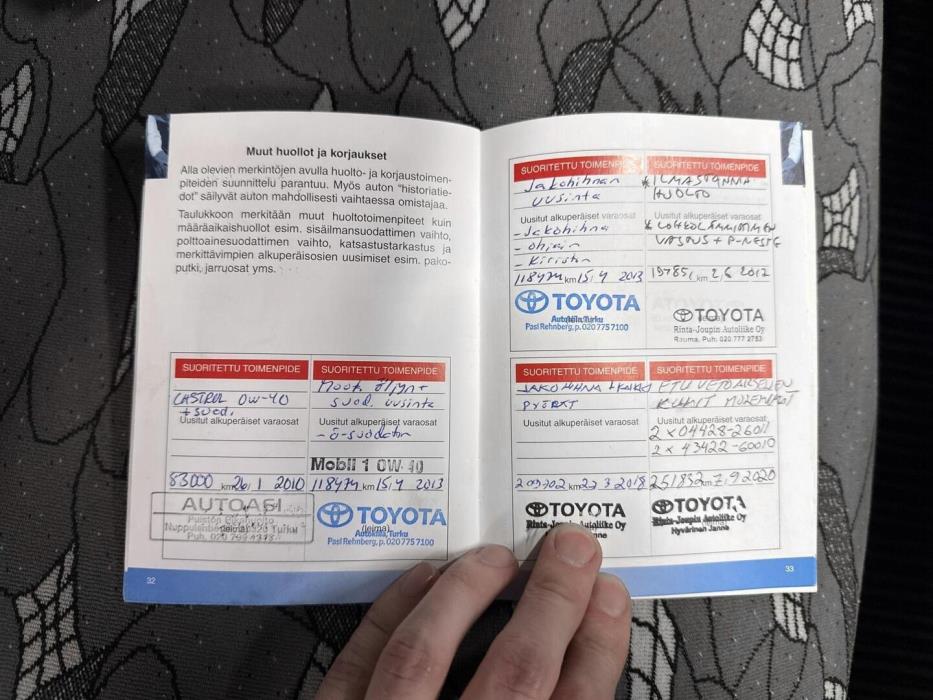 Muut huollot ja korjaukset
Alla olevien merkintöjen avulla huolto- ja korjaustoimen-
piteiden suunnittelu parantuu. Myös auton "historiatie-
dot" säilyvät auton mahdollisesti vaihtaessa omistajaa.
Taulukkoon merkitään muut huoltotoimenpiteet kuin
määräaikaishuollot esim. sisäilmansuodattimen vaihto,
polttoainesuodattimen vaihto, katsastustarkastus ja
merkittävimpien alkuperäisosien uusimiset esim. pako-
putki, jarruosat yms.
SUORITETTU TOIMENPIDE
CASTROL 0W-40
+ suod.
Uusitut alkuperäiset varaosat
83000 km 26, 1 2010
AUTOASI
Turku
Puh. 020
SUORITETTU TOIMENPIDE
Moott. öljyn +
suod. uusinta
Uusitut alkuperäiset varaosat
- ö-suodatin
Mobil 1 0W-40
118474 km 15, 4 2013
TOYOTA
(leima)
Autokilta, Turku
Pasi Rehnberg, p. 020 775 7100
32
SUORITETTU TOIMENPIDE
Jakohihnan
uusinta
Uusitut alkuperäiset varaosat
- Jakohihna
- ohjain
- Kiristin
118474 km 15, 4 2013
TOYOTA
Autokilta, Turku
Pasi Rehnberg, p. 020 775 7100
SUORITETTU TOIMENPIDE
* ILMASTOINNIN
HUOLTO
Uusitut alkuperäiset varaosat
km 2,6 2012
TOYOTA
Rinta-Joupin Autoliike Oy
Rauma, Puh: 020 777 2753
SUORITETTU TOIMENPIDE
JAKOHIHNA +
PYÖRÄT
Uusitut alkuperäiset varaosat
209702 km 22 3 2018
TOYOTA
Rinta-Joupin Autoliike Oy
SUORITETTU TOIMENPIDE
ETU VETOAKSELIEN
KUMIT MOLEMMAT
Uusitut alkuperäiset varaosat
2 x 04428-26011
2 x 43422-60010
251832 km 7, 9 2020
TOYOTA
Rinta-Joupin Autoliike Oy
Hyvärinen Janne
33